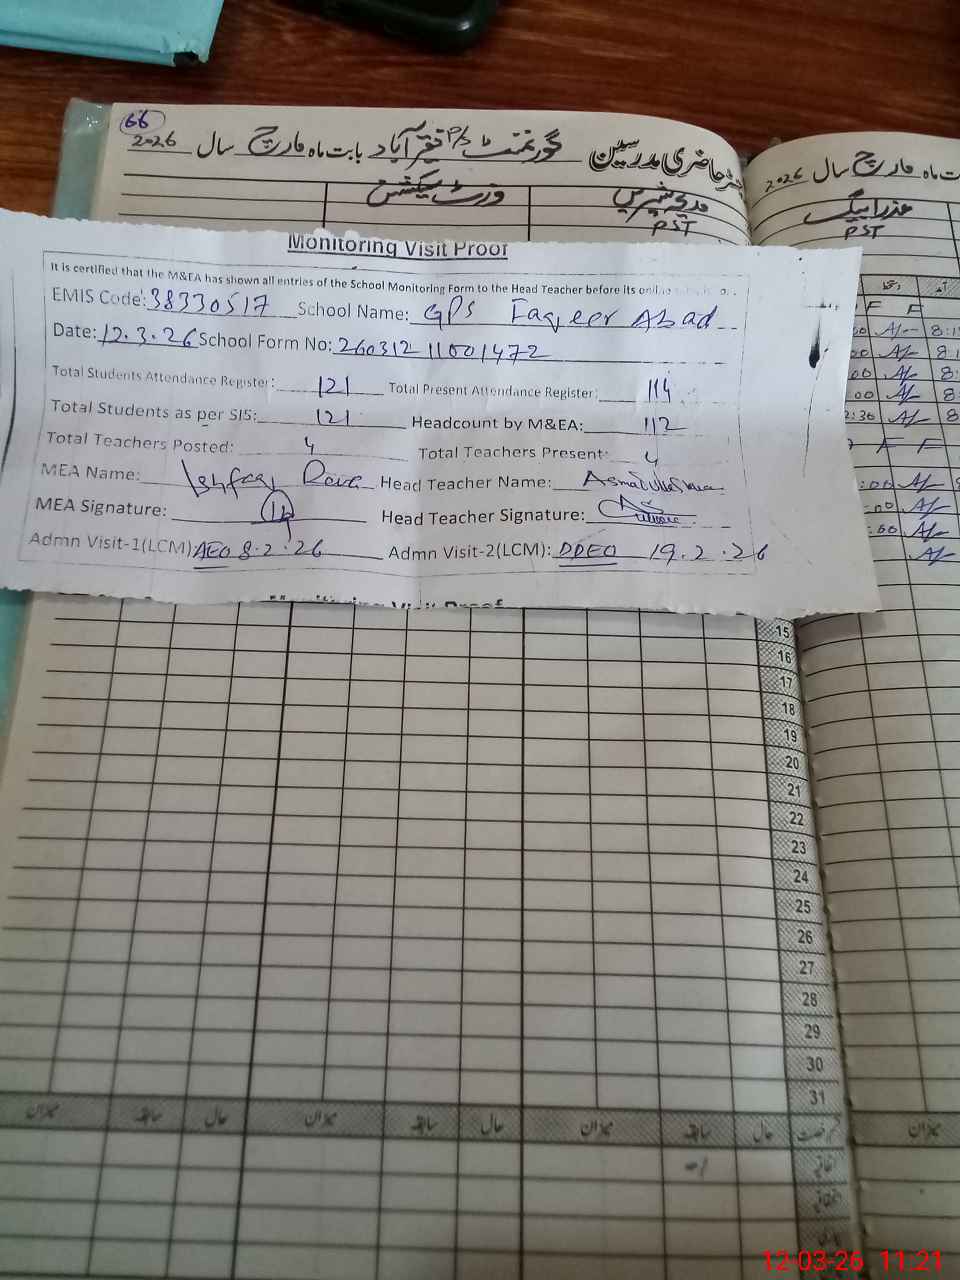 66
گورنمنٹ P/S فقیر آباد بابت ماہ مارچ سال 2026
ورٹ سیکشن
مدیحہ شیریں
PST
ماہ مارچ سال 2026
عذرا بیگ
PST
Monitoring Visit Proof
It is certified that the M&EA has shown all entries of the School Monitoring Form to the Head Teacher before its online
EMIS Code: 38330517 School Name: GPS Faqeer Abad
Date: 12.3.26 School Form No: 260312 11001472
Total Students Attendance Register: 121 Total Present Attendance Register: 114
Total Students as per SIS: 121 Headcount by M&EA: 112
Total Teachers Posted: 4 Total Teachers Present: 4
MEA Name: Ishfaq Head Teacher Name:
MEA Signature: Head Teacher Signature:
Admn Visit-1(LCM) AEO 8.2.26 Admn Visit-2(LCM): DDEO 19.2.26
15
16
17
18
19
20
21
22
23
24
25
26
27
28
29
30
31
میزان سابقہ حال میزان سابقہ حال میزان سابقہ حال میزان
اتفاقیہ
12-03-26 11:21